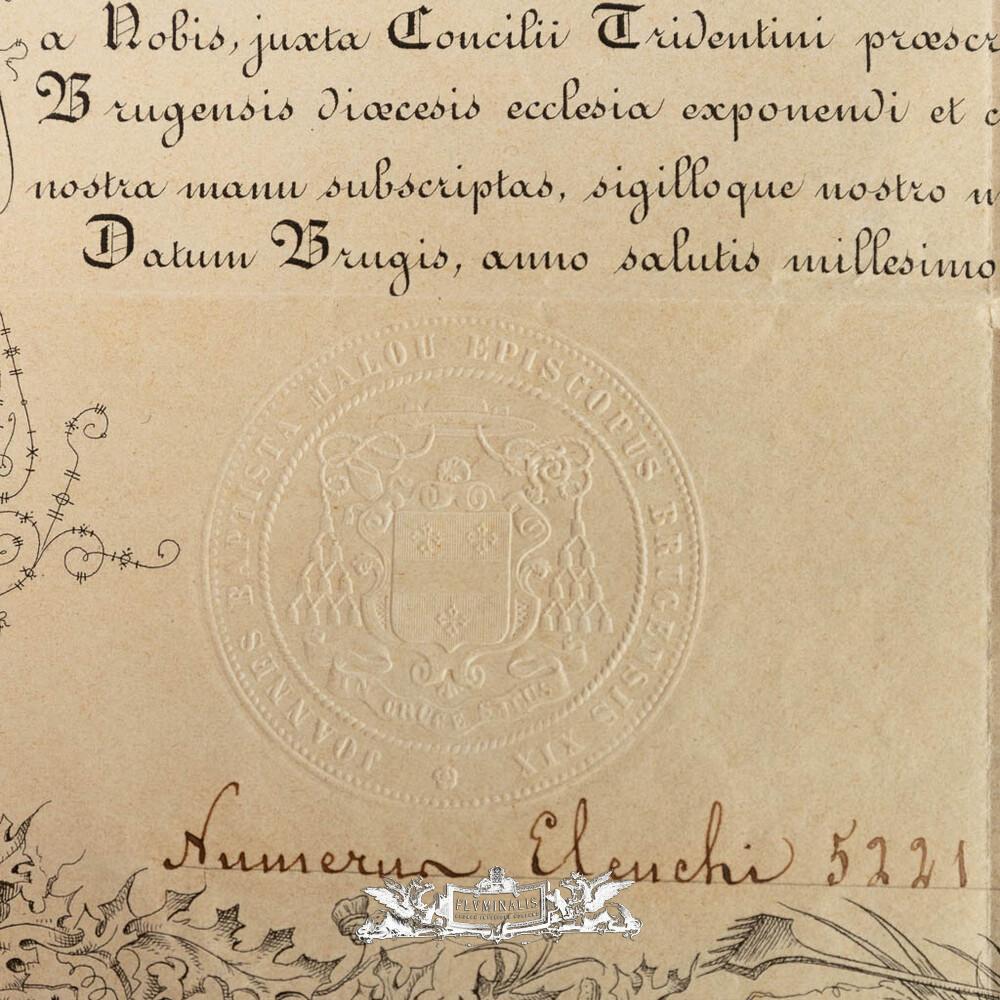 a Nobis, juxta Concilii Tridentini præscr
Brugensis diœcesis ecclesia exponendi et c
nostra manu subscriptas, sigilloque nostro
Datum Brugis, anno salutis millesimo
JOANNES BAPTISTA MALOU EPISCOPUS BRUGENSIS XIX
CRUCE
Numerus Elenchi 5221
FLVMINALIS